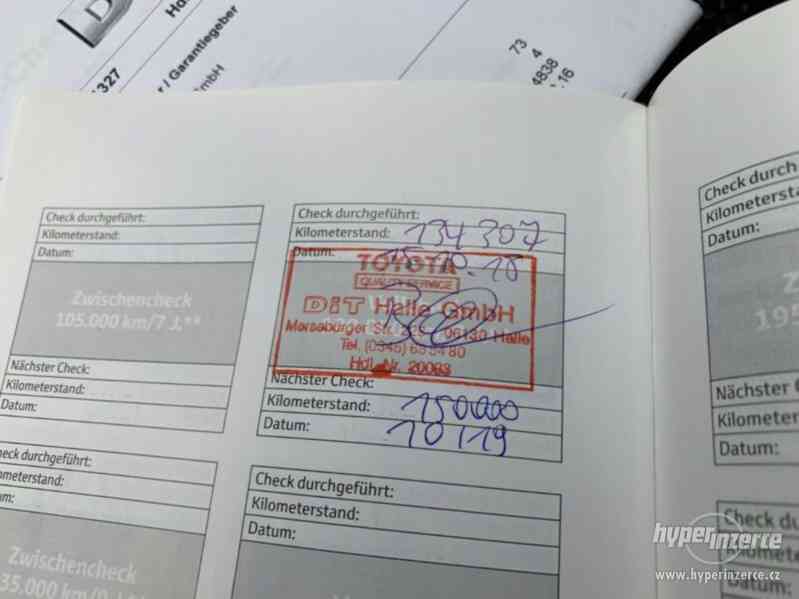 Ha
r / Garantiegeber
mbH
1327
73
4
4838
.16
Check durchgeführt:
Kilometerstand:
Datum:
Zwischencheck
105.000 km/7 J.**
Nächster Check:
Kilometerstand:
Datum:
Check durchgeführt:
Kilometerstand: 134 307
Datum: 15.10.18
TOYOTA
QUALITY SERVICE
DiT Halle GmbH
Merseburger Str. 06130 Halle
Tel. (0345) 68 54 80
Hdl. Nr. 20083
Nächster Check:
Kilometerstand: 150000
Datum: 10/19
Check durch
Kilometersta
Datum:
Z
195
Nächster C
Kilometer
Datum:
Check durchgeführt:
meterstand:
m:
Zwischencheck
35.000 km/9 J.**
Check durchgeführt:
Kilometerstand:
Datum:
Check du
hyperinzerce
www.hyperinzerce.cz